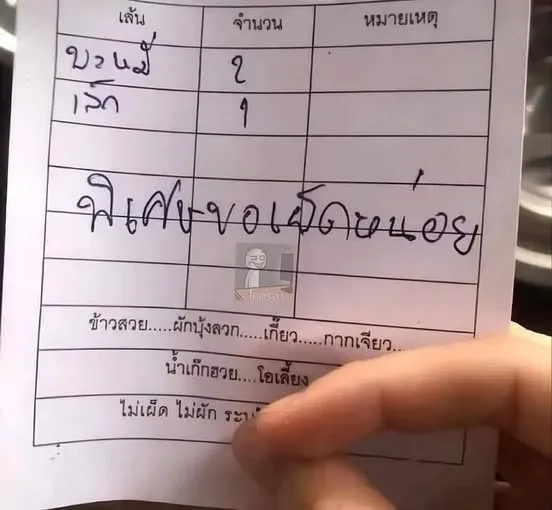 เส้น จำนวน หมายเหตุ
บะหมี่ 2
เล็ก 1
พิเศษขอเผ็ดหน่อย
ข้าวสวย.....ผักบุ้งลวก.....เกี๊ยว.....กากเจียว..
น้ำเก๊กฮวย....โอเลี้ยง
ไม่เผ็ด ไม่ผัก